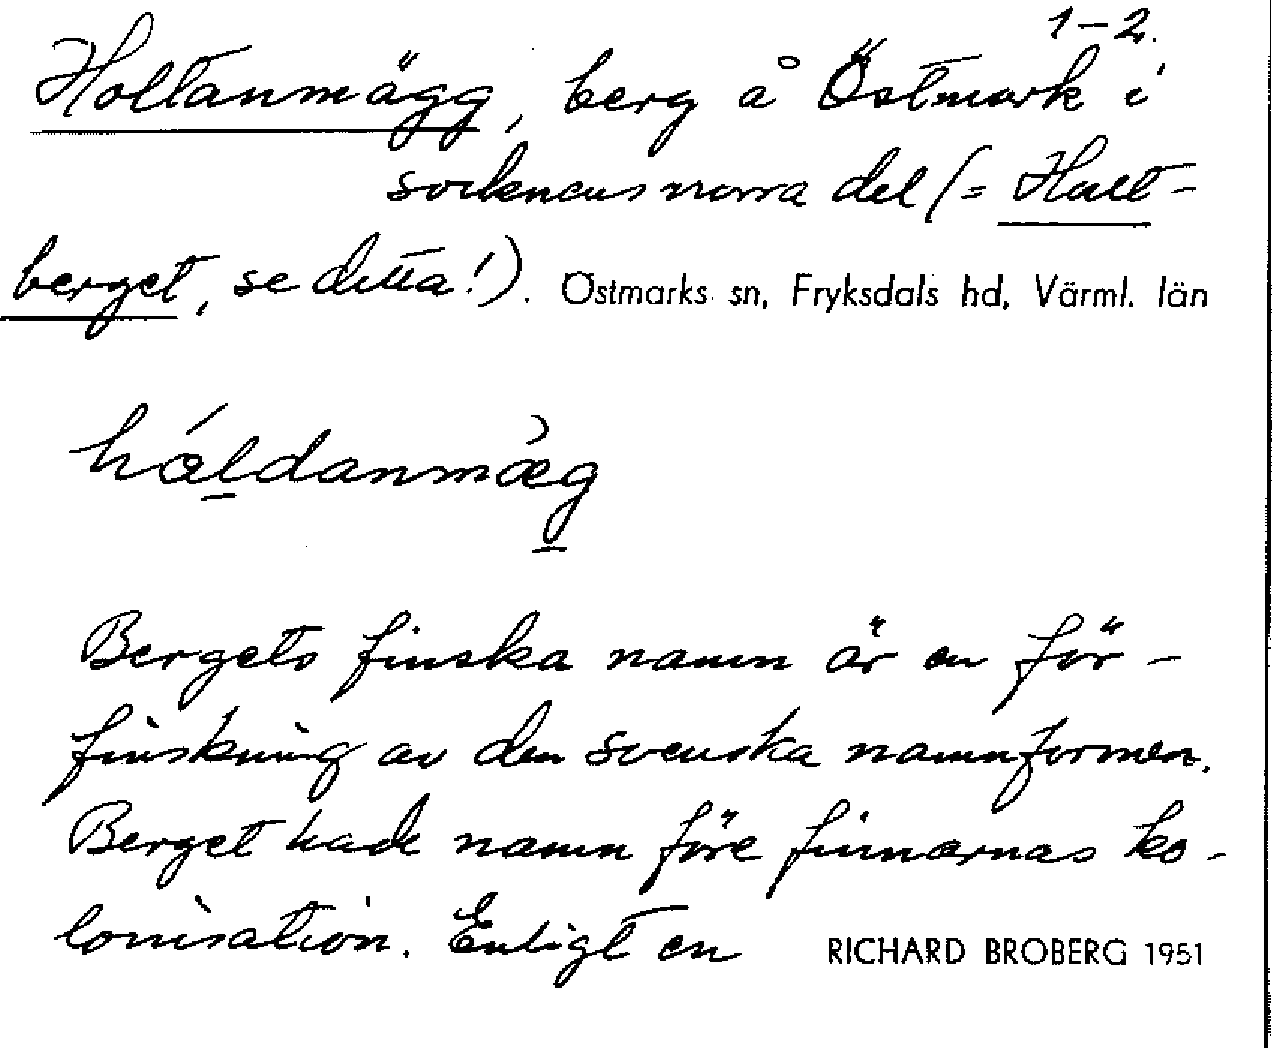 1-2.
Holtanmägg, berg å Östmark i
socknens norra del (= Hult-
berget, se detta!). Östmarks sn, Fryksdals hd, Värml. län
Bergets finska namn är en för-
finskning av den svenska namnformen.
Berget hade namn före finnarnas ko-
lonisation. Enligt en RICHARD BROBERG 1951